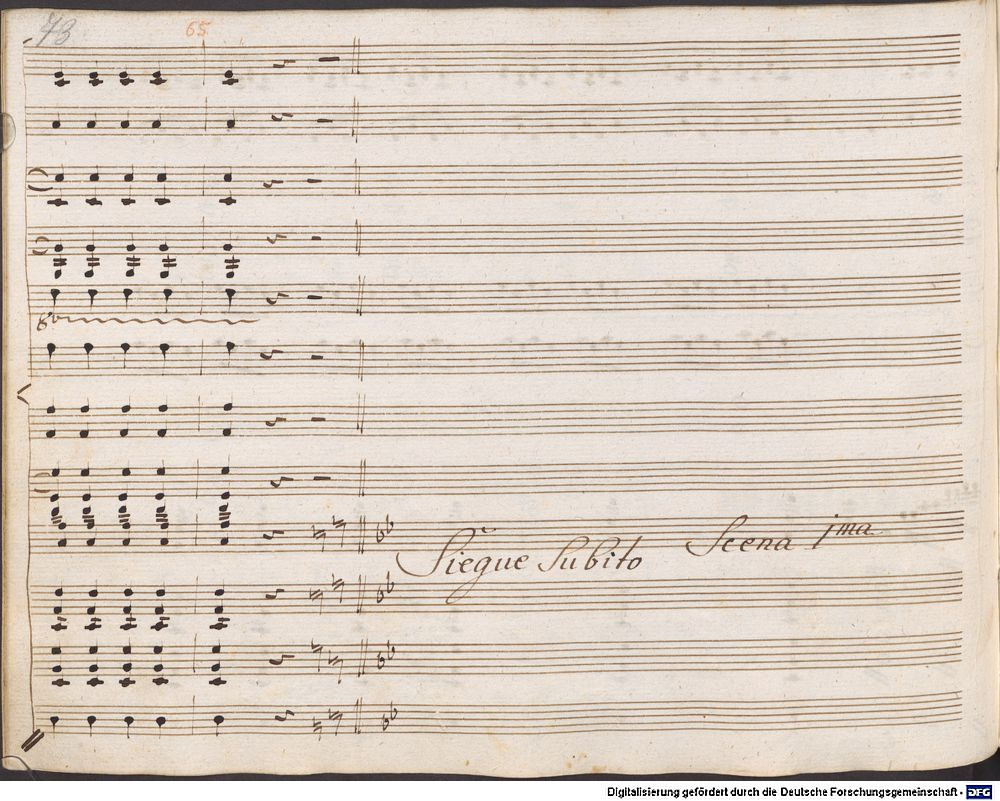 73 65
8va
Siegue Subito Scena jma
Digitalisierung gefördert durch die Deutsche Forschungsgemeinschaft - DFG